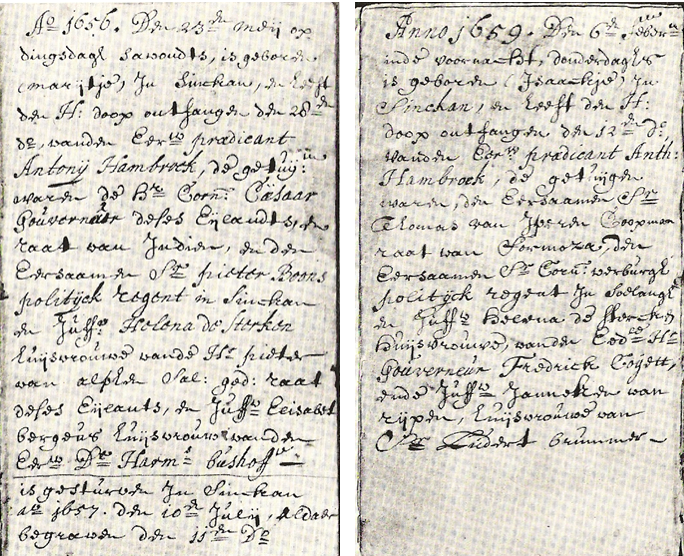 Ao 1656. Den 23en meij op
dingsdagh savondts, is geboren
(marijtje) In Sinckan, en heeft
den H: doop ontfangen den 28en
do, vanden Eerw prædicant
Antonij Hambroek, de getuij:
waren de Hr Corn: Cæsaar
Gouverneur deses Eijlandts, en
raat van Indien, en den
Eersaamen Sr pieter Boons
polityck regent in Sinckan
en Juffr Helena de Sterken
huijsvrouwe vande Hr pieter
van alphen Sal: ged: raat
deses Eijlants, en Juffw Elisabet
bergeus huijsvrouwe vanden
Eerw Ds Harms bushoff
is gesturven In Sinckan
ao 1657. den 10en Julij, aldaer
begraven den 11en Do
Anno 1659. Den 6en febern
inde voornacht, donderdaghs
is geboren (Isaackje) In
Sinckan, en heeft den H:
doop ontfangen den 12en do:
vanden Eerw prædicant Anth:
Hambroek, de getuijgen
waren, den Eersaamen Sr
Thomas van Iperen Coopman
raat van formoza, den
Eersaamen Sr Corn: verburgh
polityck regent In Soelangh
en Juffw Helena de sterken
huijsvrouwe, vanden Ed Hr
Gouverneur Fredrick Coyett,
ende Juffw Janneken van
rijpen, huijsvrouwe van
Sr Ludert brummer